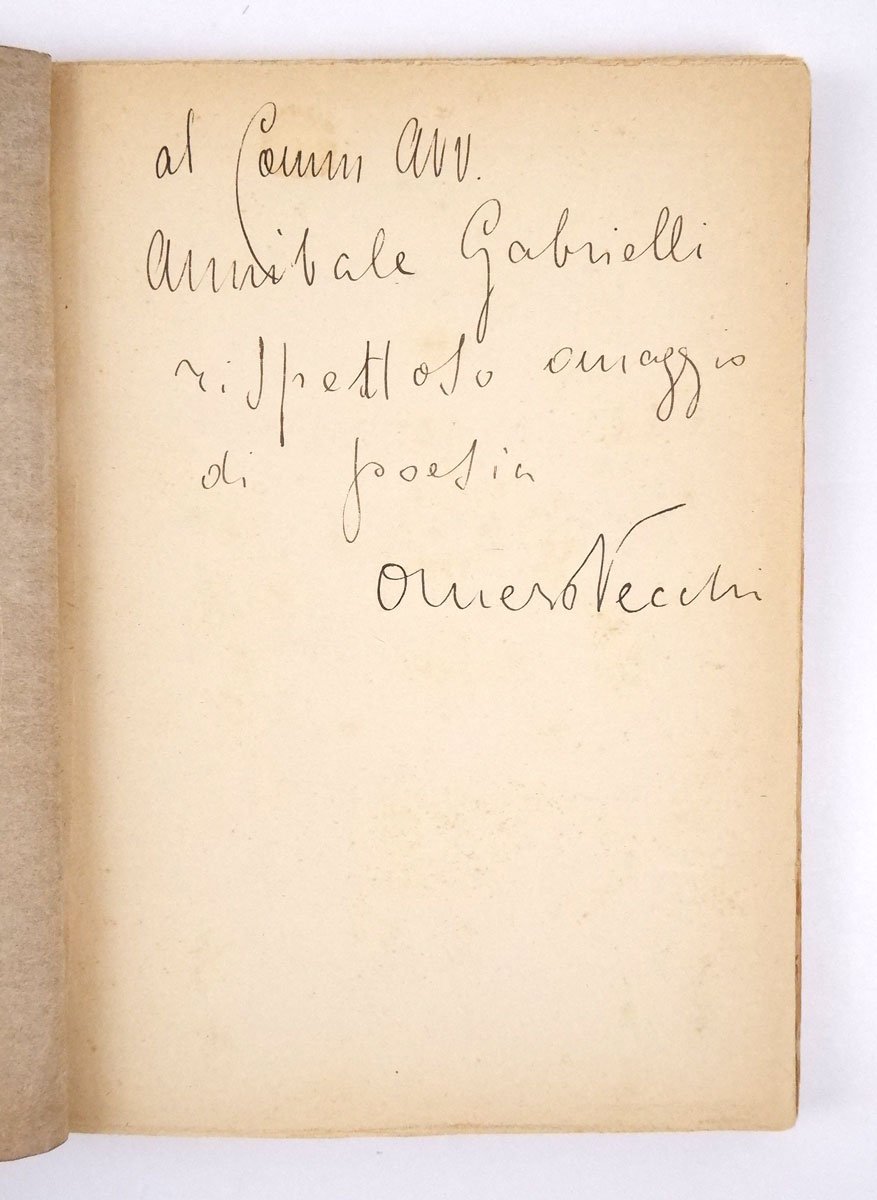 al Comm Avv.
Annibale Gabrielli
rispettoso omaggio
di poesia
Omero Vecchi